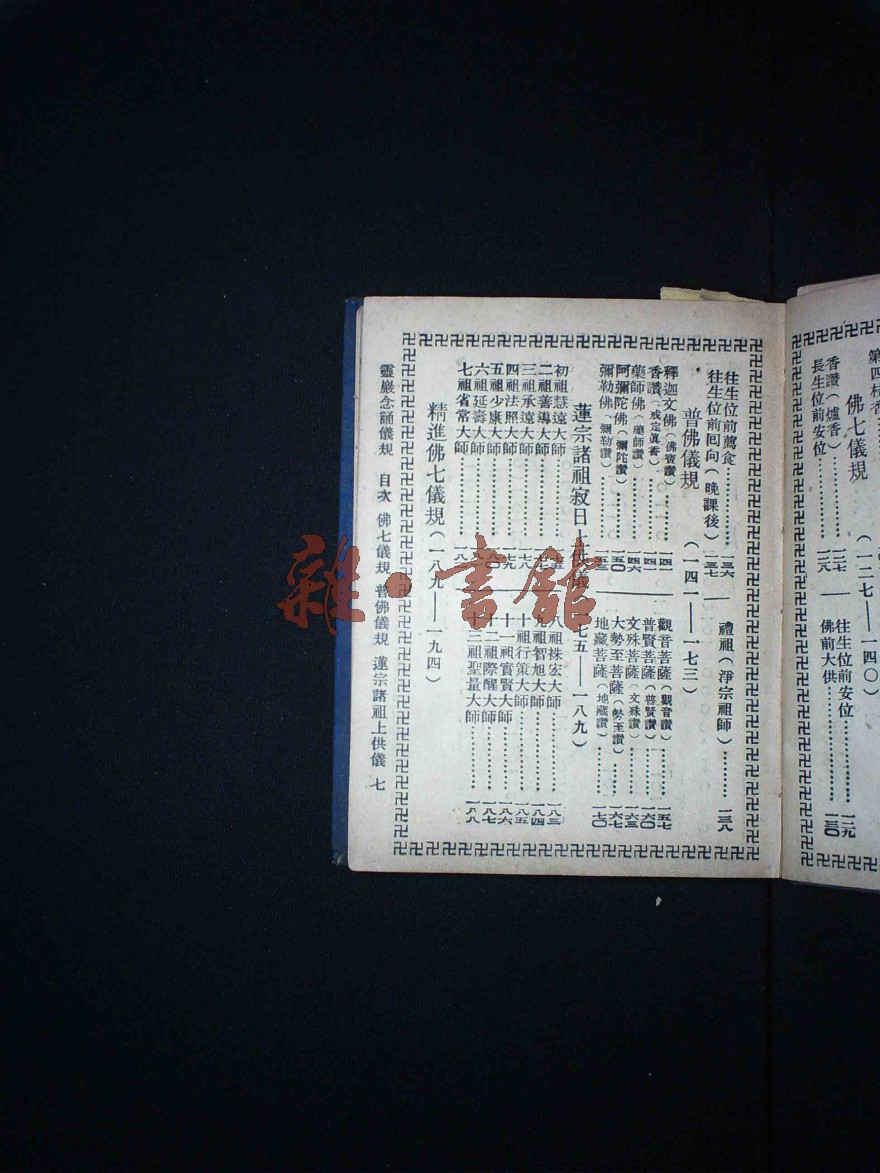 第四枝香
香讚(爐香)
長生位前安位
一二七
一二八
往生位前安位
佛前大供
一二九
一三〇
佛七儀規(一二七——一四〇)
往生位前薦食
一三六
往生位前囘向(晚課後)
一三七
禮祖(淨宗祖師)
一三八
普佛儀規(一四一——一七三)
釋迦文佛(佛寶讚)
一四一
香讚(戒定眞香)
一四一
藥師佛(藥師讚)
一四六
阿彌陀佛(彌陀讚)
一五〇
彌勒佛(彌勒讚)
觀音菩薩(觀音讚)
一五七
普賢菩薩(普賢讚)
一六〇
文殊菩薩(文殊讚)
一六三
大勢至菩薩(勢至讚)
一六七
地藏菩薩(地藏讚)
一七〇
蓮宗諸祖寂日上供儀(一七五——一八九)
初祖慧遠大師
二祖善導大師
三祖承遠大師
一七八
四祖法照大師
一七九
五祖少康大師
一八〇
六祖延壽大師
七祖省常大師
八祖袾宏大師
一八三
九祖智旭大師
一八四
十祖行策大師
一八五
十一祖實賢大師
一八六
十二祖際醒大師
一八七
十三祖聖量大師
一八八
精進佛七儀規(一八九——一九四)
靈巖念誦儀規 目次 佛七儀規 普佛儀規 蓮宗諸祖上供儀 七
雜·書館